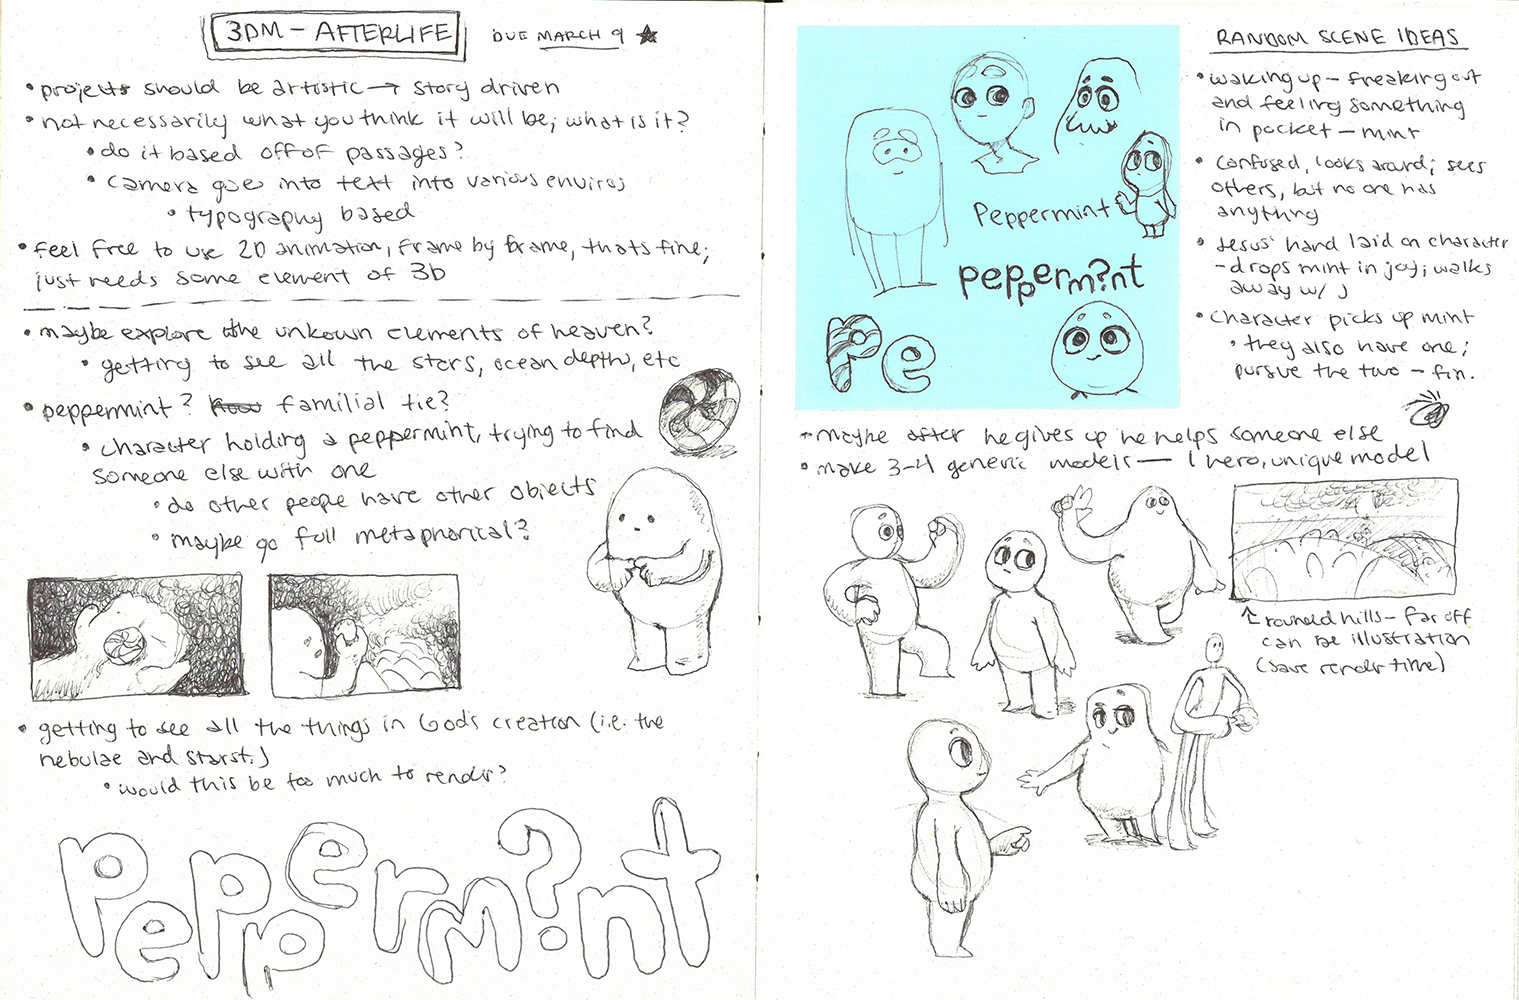 3DM - AFTERLIFE
DUE MARCH 9 ★
• projects should be artistic → story driven
• not necessarily what you think it will be; what is it?
• do it based off of passages?
• camera goes into text into various enviros
• typography based
• feel free to use 2D animation, frame by frame, thats fine;
just needs some element of 3D
• maybe explore the unkown elements of heaven?
• getting to see all the stars, ocean depths, etc
• peppermint? familial tie?
• character holding a peppermint, trying to find
someone else with one
• do other people have other objects
• maybe go full metaphorical?
• getting to see all the things in God's creation (i.e. the
nebulae and stars.)
• would this be too much to render?
Pepperm?nt
Peppermint
pepperm?nt
Pe
RANDOM SCENE IDEAS
• waking up - freaking out
and feeling something
in pocket - mint
• confused, looks around; sees
others, but no one has
anything
• Jesus' hand laid on character
- drops mint in joy; walks
away w/ J
• character picks up mint
• they also have one;
pursue the two - fin.
• maybe after he gives up he helps someone else
• make 3-4 generic models — 1 hero, unique model
↑ rounded hills - far off
can be illustration
(save render time)